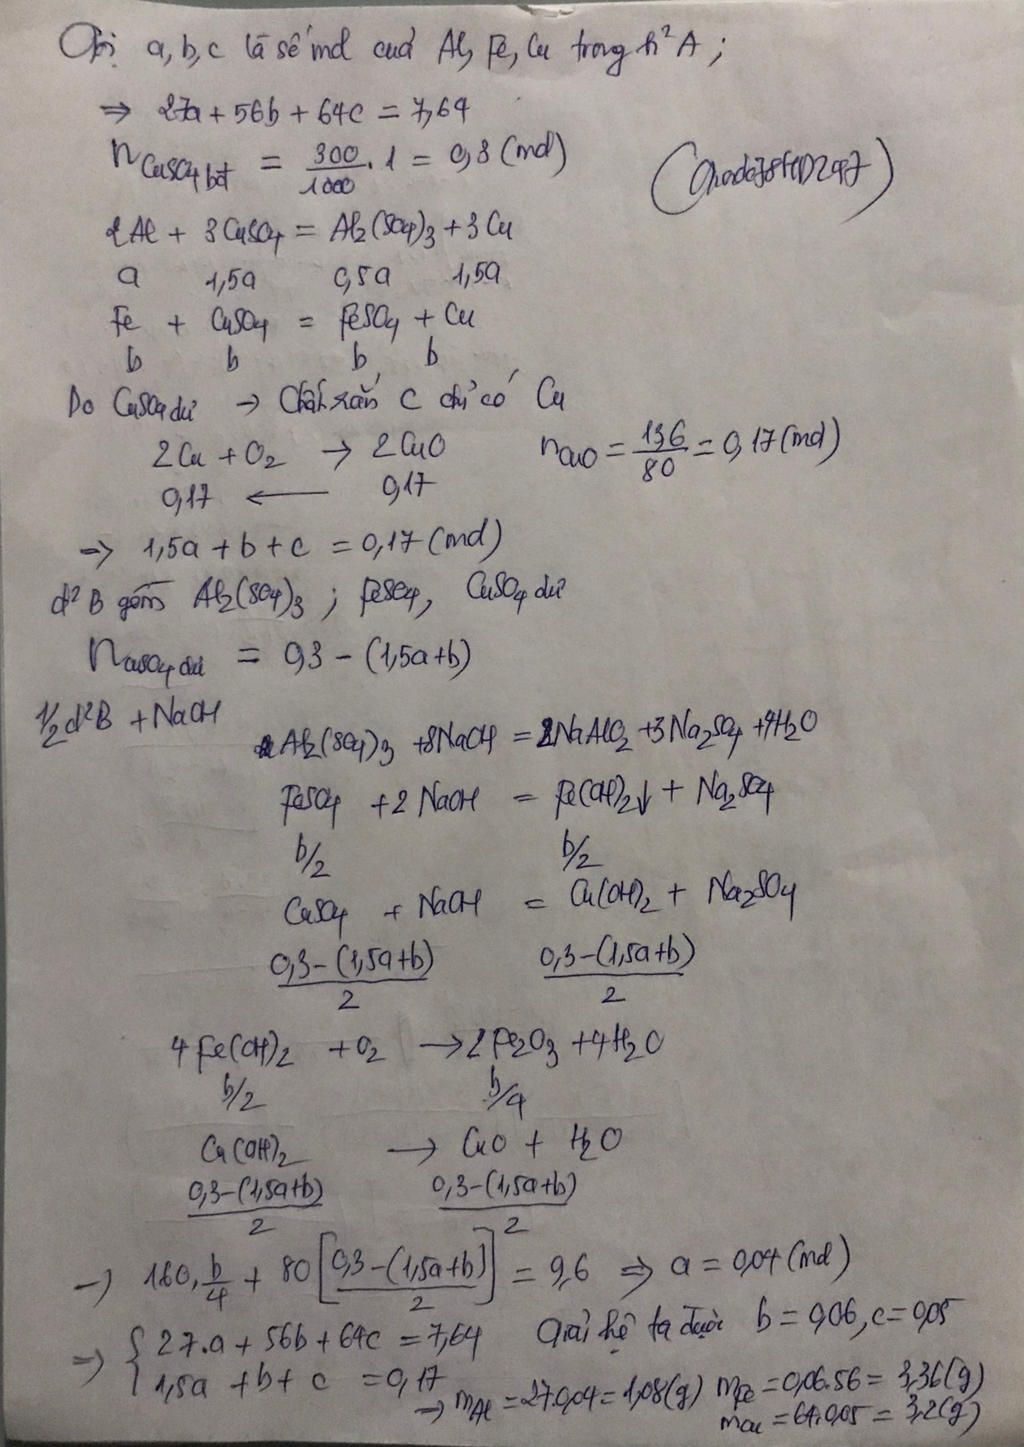 Gọi a, b, c là số mol của Al, Fe, Cu trong h² A ;
⇒ 27a + 56b + 64c = 7,64
n CuSO4 bđ = 300/1000 . 1 = 0,3 (mol)
2Al + 3CuSO4 = Al2(SO4)3 + 3Cu
a 1,5a 0,5a 1,5a
Fe + CuSO4 = FeSO4 + Cu
b b b b
Do CuSO4 dư → Chất rắn C chỉ có Cu
2Cu + O2 → 2CuO nCuO = 13,6/80 = 0,17 (mol)
0,17 ← 0,17
⇒ 1,5a + b + c = 0,17 (mol)
d² B gồm Al2(SO4)3 ; FeSO4, CuSO4 dư
n CuSO4 dư = 0,3 - (1,5a+b)
1/2 d²B + NaOH
Al2(SO4)3 + 8NaOH = 2NaAlO2 + 3Na2SO4 + 4H2O
FeSO4 + 2NaOH = Fe(OH)2↓ + Na2SO4
b/2 b/2
CuSO4 + NaOH = Cu(OH)2 + Na2SO4
0,3-(1,5a+b)/2 0,3-(1,5a+b)/2
4Fe(OH)2 + O2 → 2Fe2O3 + 4H2O
b/2 b/4
Cu(OH)2 → CuO + H2O
0,3-(1,5a+b)/2 0,3-(1,5a+b)/2
→ 160. b/4 + 80 [0,3-(1,5a+b)/2] = 9,6 ⇒ a = 0,04 (mol)
⇒ { 27.a + 56b + 64c = 7,64 Giải hệ ta được b = 0,06, c = 0,05
1,5a + b + c = 0,17
→ mAl = 27.0,04 = 1,08 (g) mFe = 0,06.56 = 3,36 (g)
mCu = 64.0,05 = 3,2 (g)